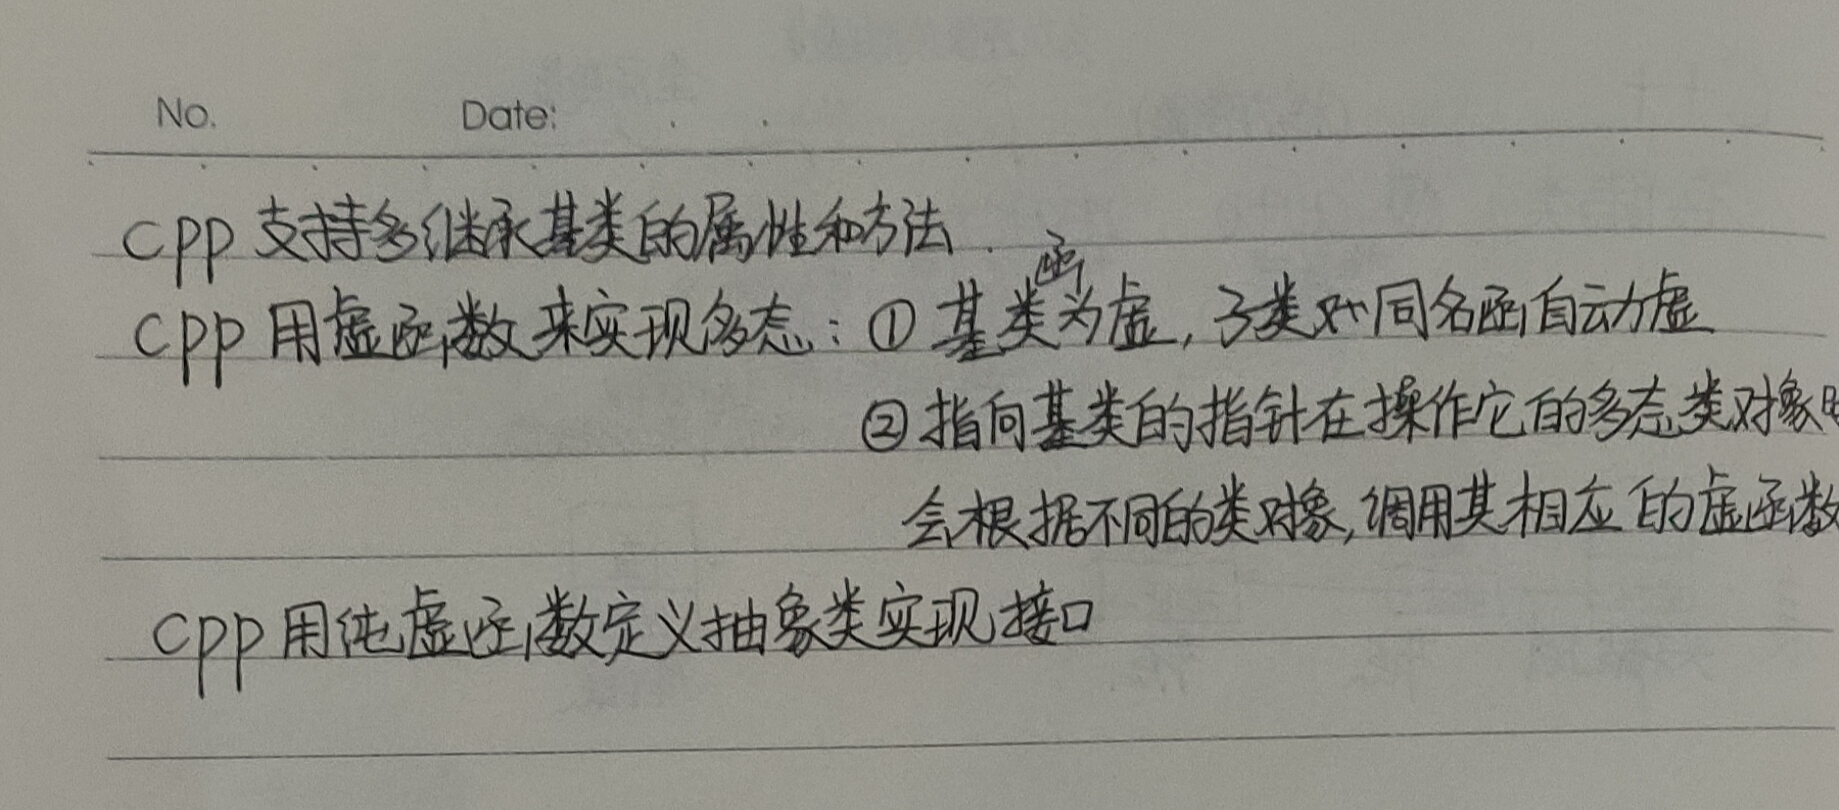 No. Date:
cpp 支持多继承基类的属性和方法.
cpp 用虚函数来实现多态: ① 基类函为虚, 子类对同名函自动虚
② 指向基类的指针在操作它的多态类对象时
会根据不同的类对象, 调用其相应的虚函数
cpp 用纯虚函数定义抽象类实现接口